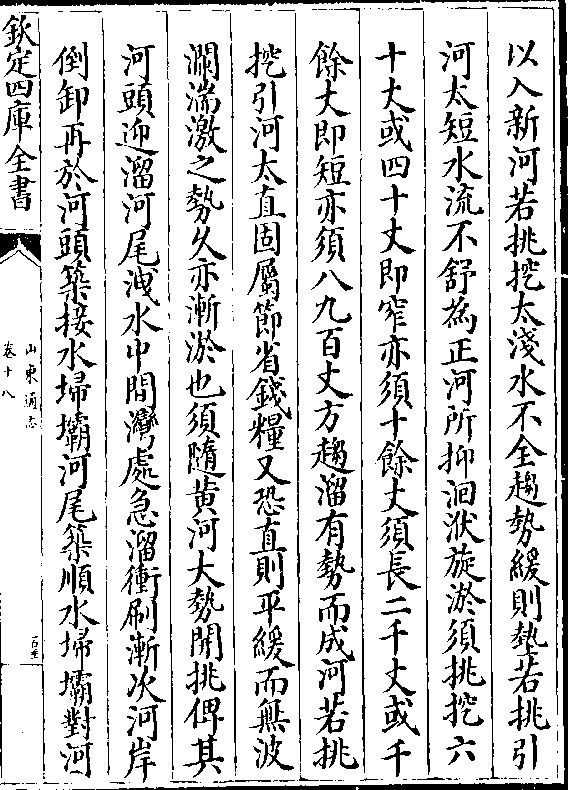 以入新河若挑挖太淺水不全趨勢緩則墊若挑引
河太短水流不舒為正河所抑洄洑旋淤須挑挖六
十丈或四十丈即窄亦須十餘丈須長二千丈或千
餘丈即短亦須八九百丈方趨溜有勢而成河若挑
挖引河太直固屬節省錢糧又恐直則平緩而無波
瀾湍激之勢久亦漸淤也須隨黄河大勢開挑俾其
河頭迎溜河尾洩水中間灣處急溜衝刷漸次河岸
倒卸再於河頭築接水埽壩河尾築順水埽壩對河
欽定四庫全書
山東通志
卷十八